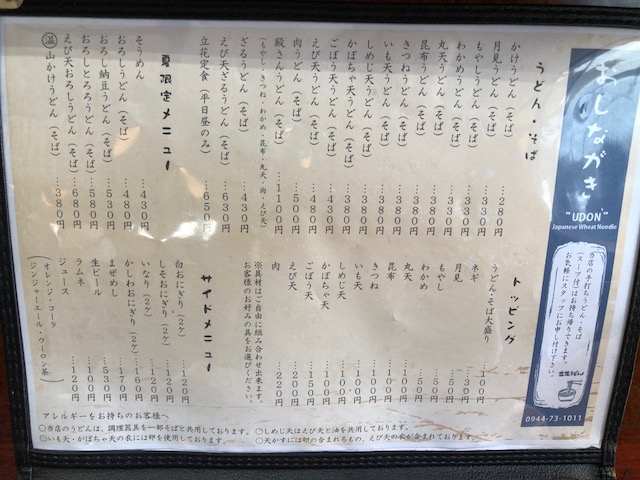 おしながき
"UDON"
Japanese Wheat Noodle
当店の手打ちうどん・そば
(スープ付)はお持ち帰りできます。
お気軽にスタッフにお申し付け下さい。
0944-73-1011
うどん・そば
かけうどん(そば) …280円
月見うどん(そば) …330円
もやしうどん(そば) …330円
わかめうどん(そば) …330円
丸天うどん(そば)
昆布うどん(そば)
きつねうどん(そば)
いも天うどん(そば)
しめじ天うどん(そば)
かぼちゃ天うどん(そば)
ごぼう天うどん(そば) …430円
えび天うどん(そば) …480円
肉うどん(そば) …500円
殿さんうどん(そば) …1100円
(もやし・きつね・わかめ・昆布・丸天・肉・えび天)
ざるうどん(そば) …430円
えび天ざるうどん(そば) …630円
立花定食(平日昼のみ) …650円
夏限定メニュー
そうめん …430円
おろしうどん(そば) …480円
おろし納豆うどん(そば) …530円
おろしとろろうどん(そば) …580円
えび天おろしうどん(そば) …680円
温 山かけうどん(そば) …380円
トッピング
うどん・そば大盛り …100円
ネギ …30円
月見 …50円
もやし …50円
わかめ …50円
昆布
丸天
きつね …100円
いも天 …100円
しめじ天 …100円
かぼちゃ天 …100円
ごぼう天 …150円
えび天 …200円
肉 …220円
※具材はご自由に組み合わせ出来ます。
お客様のお好みの具をお選びください。
サイドメニュー
白おにぎり(2ケ) …120円
しそおにぎり(2ケ) …120円
いなり(2ケ) …120円
かしわおにぎり(2ケ) …160円
まぜめし …170円
生ビール …530円
ラムネ …100円
ジュース …120円
(オレンジ・コーラ
ジンジャーエール・ウーロン茶)
アレルギーをお持ちのお客様へ
○当店のうどんは、調理器具を一部そばと共用しております。 ○しめじ天はえび天と油を共用しております。
○いも天・かぼちゃ天の衣には卵を使用しております。 ○天かすには卵の含まれるもの、えび天の衣が含まれております。